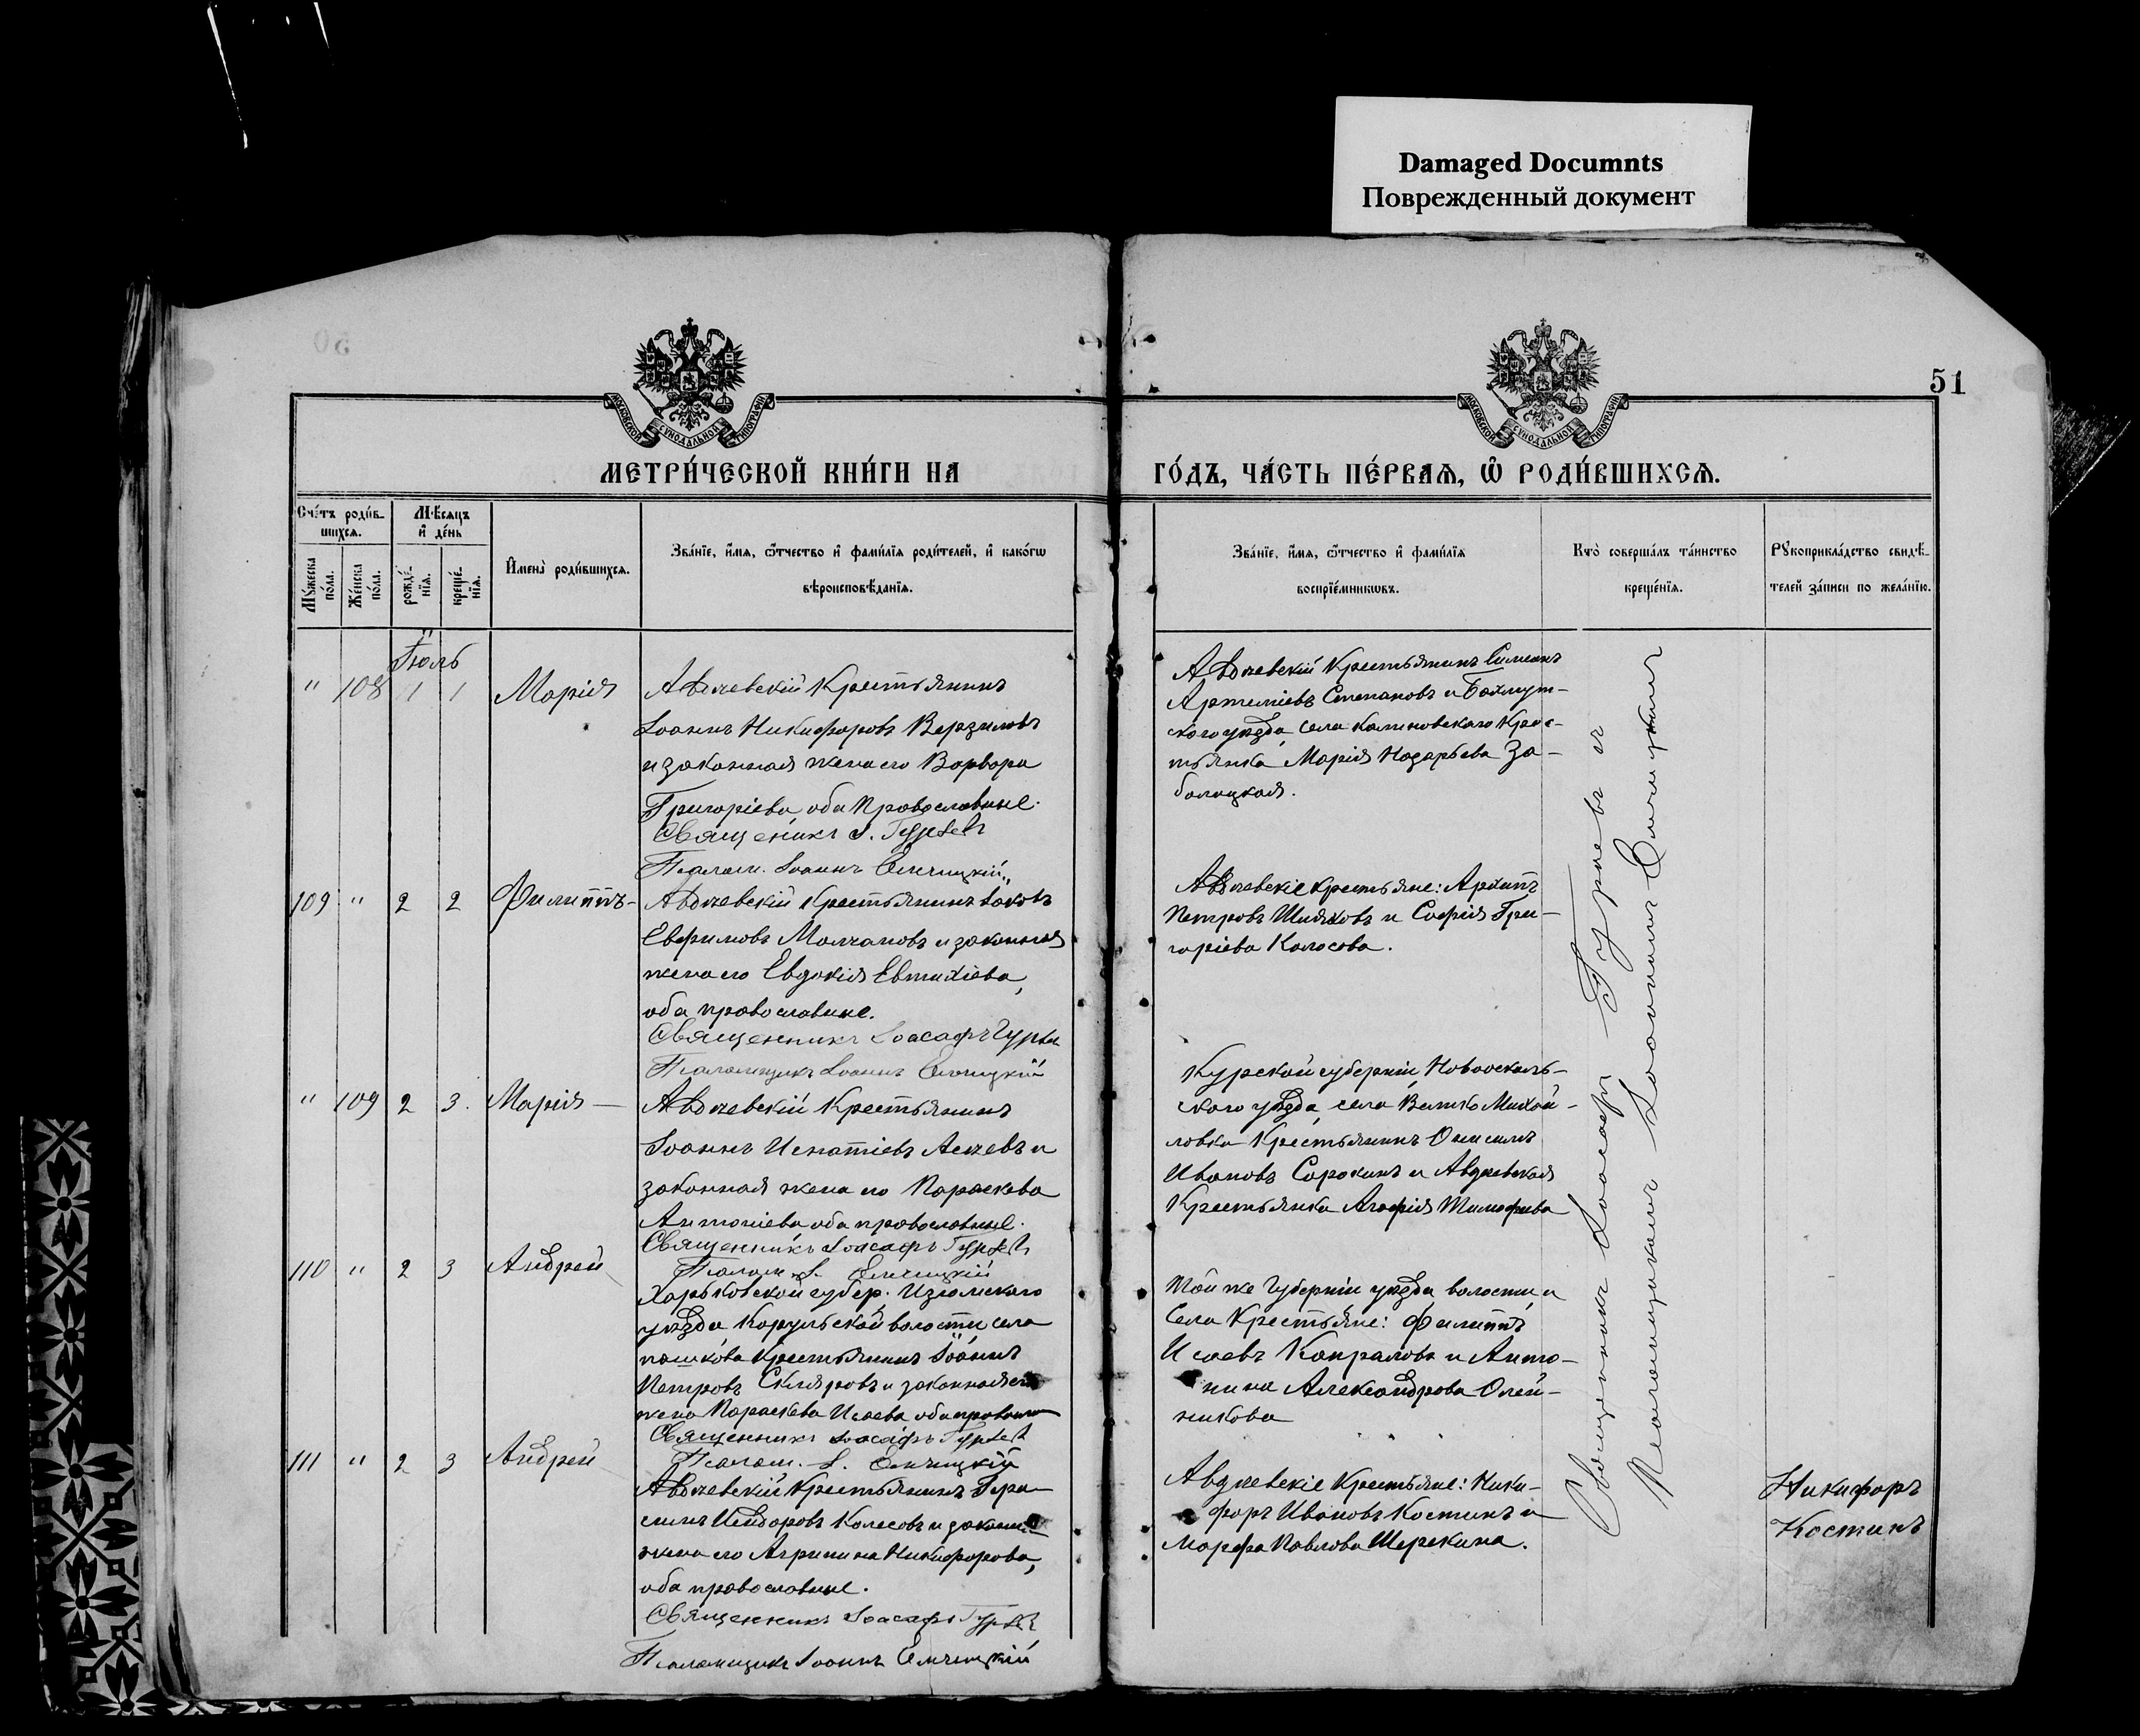 Damaged Documnts
Поврежденный документ
51
МОСКОВСКОЙ СУНОДАЛЬНОЙ ТИПОГРАФІИ
МОСКОВСКОЙ СУНОДАЛЬНОЙ ТИПОГРАФІИ
МЕТРИ́ЧЕСКОЙ КНИ́ГИ НА
ГО́ДЪ, ЧА́СТЬ ПЕ́РВАѦ, Ѽ РОДИ́ВШИХСѦ.
Счётъ роди́в-
шихсѧ.
Мѣ́сѧцъ
и҆ де́нь
Мꙋ́жеска по́ла.
Же́нска по́ла.
рожде́-нїѧ.
креще́-нїѧ.
И҆мена̀ роди́вшихсѧ.
Зва́нїе, и҆́мѧ, ѻ҆́тчество и҆ фами́лїѧ роди́телей, и҆ како́гѡ
вѣроисповѣ́данїѧ.
Зва́нїе, и҆́мѧ, ѻ҆́тчество и҆ фами́лїѧ
воспрїе́мникѡвъ.
Кто̀ соверша́лъ та́инство
креще́нїѧ.
Рꙋкоприкла́дство свидѣ́-
телей за́писи по жела́нїю.
Іюль
" 108 1 1 Марія
Авдѣевскій Крестьянинъ
Іоаннъ Никифоровъ Верзиловъ
и законная жена его Варвара
Григоріева, оба Православные.
Священикъ І. Гурѣевъ
Псалом. Іоаннъ Емчицкій
Авдѣевскій Крестьянинъ Симеонъ
Артеміевъ Степановъ и Бахмут-
скаго уѣзда, села Калиновскаго Крес-
тьянка Марія Назарьева За-
болоцкая.
109 " 2 2 Филиппъ
Авдѣевскій Крестьянинъ Іаковъ
Евфимовъ Молчановъ и законная
жена его Евдокія Евтихіева,
оба православные.
Священникъ Іоасафъ Гурѣев
Псаломщикъ Іоаннъ Емчицкій
Авдѣевскіе крестьяне: Архипъ
Петровъ Шияковъ и Софія Гри-
горіева Колосова.
" 109 2 3. Марія
Авдѣевскій Крестьянинъ
Іоаннъ Игнатіевъ Асѣевъ и
законная жена его Параскева
Антоніева оба православные.
Священникъ Іоасафъ Гурѣевъ
Псалом. І. Емчицкій
Курской губерніи Новооскаль-
скаго уѣзда, села Велико Михай-
ловки Крестьянинъ Онисимъ
Ивановъ Сорокинъ и Авдѣевская
Крестьянка Агафія Тимофеева
110 " 2 3 Андрей
Харьковской губер. Изюмскаго
уѣзда волости села
Крестьянинъ Іоаннъ
Петровъ Скляровъ и законная его
жена Параскева Исаева оба правосл
Священникъ Іоасафъ Гурѣевъ
Псалом. І. Емчицкій
Той же Губерніи уѣзда, волости и
Села Крестьяне: Филиппъ
Исаевъ Капраловъ и Анто-
нина Александрова Олей-
никова
111 " 2 3 Андрей
Авдѣевскій Крестьянинъ Гера-
симъ Исидоровъ Колесовъ и законн
жена его Агрипина Никифорова,
оба православные.
Священникъ Іоасафъ Гурѣевъ
Псаломщикъ Іоаннъ Емчицкій
Авдѣевскіе Крестьяне: Ники-
форъ Ивановъ Костинъ и
Марфа Павлова Шерекина.
Священникъ Іоасафъ Гурѣевъ и
Псаломщикъ Іоаннъ Емчицкій
Никифоръ
Костинъ